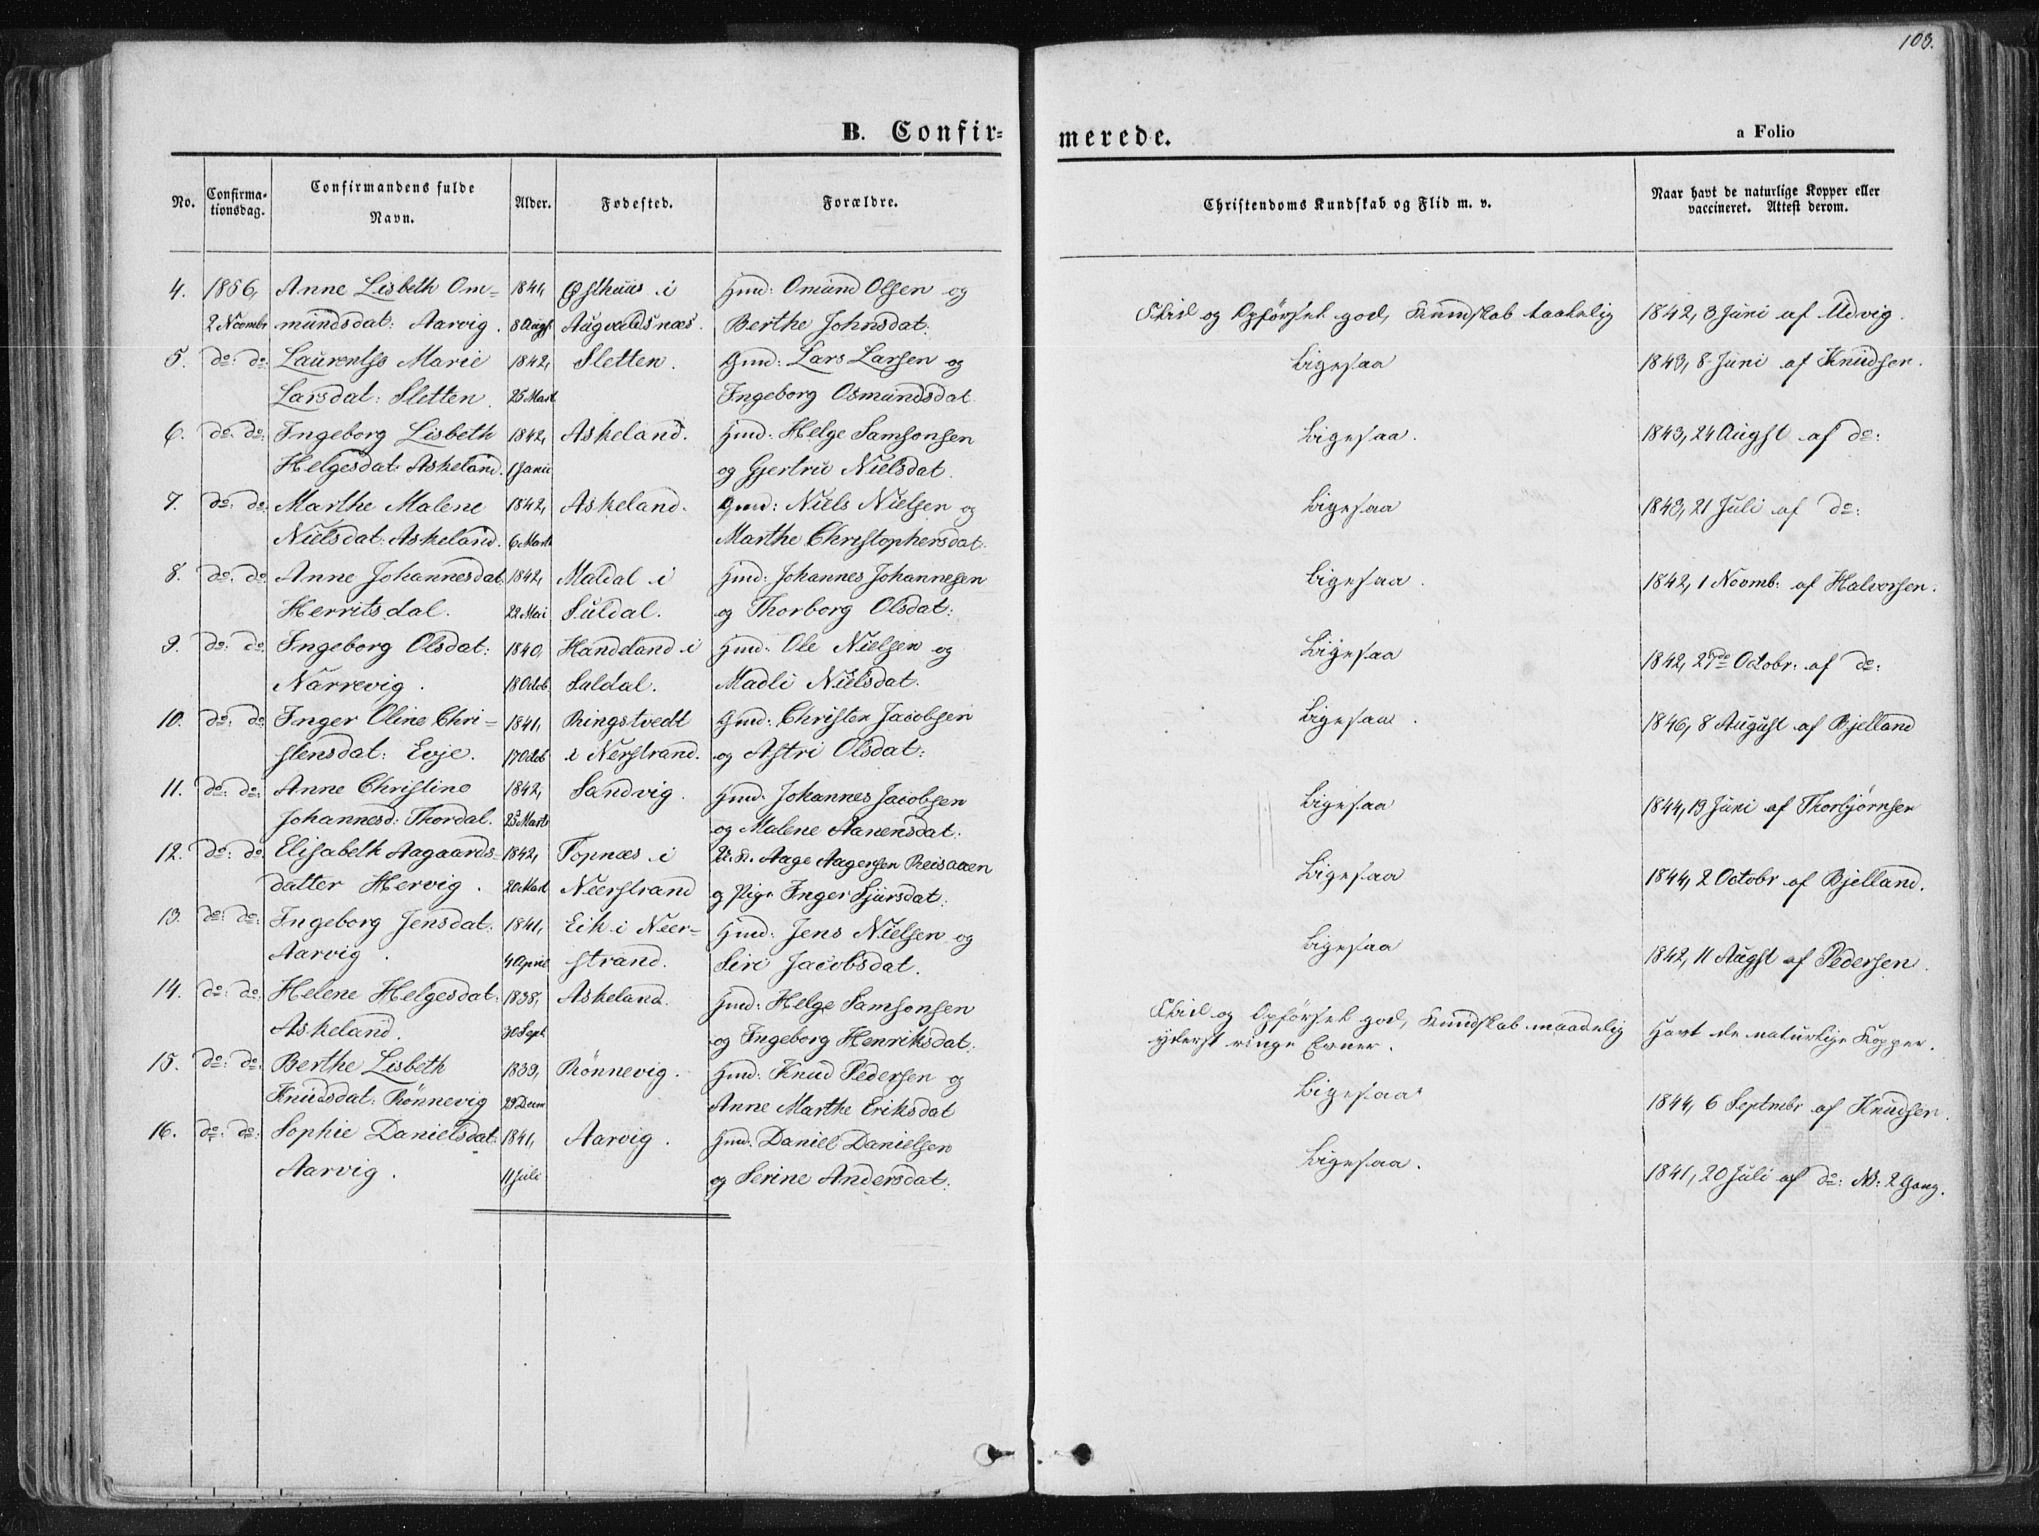 103.
B. Confir=
merede.
a Folio
No.
Confirma-
tionsdag.
Confirmandens fulde
Navn.
Alder.
Fødested.
Forældre.
Christendoms Kundskab og Flid m. v.
Naar havt de naturlige Kopper eller
vaccineret. Attest derom.
4. 1856, Anne Lisbeth Om= 1841, Østhuus i Gmd: Omund Olsen og
2 Novmbr mundsdat: Aarvig. 8 Augst Augvaldsnæs. Berthe Johnsdat:
Flid og Opførsel god, Kundskab taalelig 1842, 3 Juni af Udvig.
5. do: do: Laurentse Marie 1842, Sletten. Gmd: Lars Larsen og
Larsdat: Sletten. 25 Mart Ingeborg Osmundsdat
Ligesaa 1843, 8 Juni af Knudsen.
6. do: do: Ingeborg Lisbeth 1842, Askeland. Gmd: Helge Samsonsen
Helgesdat: Askeland. 1 Janu og Gjertru Nielsdat.
Ligesaa. 1843, 24 Augst af do:
7. do: do: Marthe Malene 1842, Askeland. Gmd: Niels Nielsen og
Nielsdat: Askeland. 6 Marts Marthe Christophersdat.
Ligesaa 1843, 21 Juli af do:
8. do: do: Anne Johannesdat: 1842, Maldal i Gmd: Johannes Johannesen
Herritsdal. 22 Mai Suldal. og Thorborg Olsdat:
Ligesaa. 1842, 1 Novmb: af Halvorsen.
9. do: do: Ingeborg Olsdat: 1840, Handeland i Gmd: Ole Nielsen og
Narrevig. 18 Octob Suldal. Madli Nielsdat.
Ligesaa 1842, 27de Octobr: af do:
10. do: do: Inger Oline Chri= 1841, Ringstvedt Gmd: Christen Jacobsen
stensdat: Evje. 17 Octob i Nerstrand. og Astri Olsdat:
Ligesaa. 1846, 8 August af Bjelland
11. do: do: Anne Christine 1842, Sandvig. Gmd: Johannes Jacobsen
Johannesd: Thordal. 25 Marts og Malene Aanensdat:
Ligesaa 1844, 19 Juni af Thorbjørnsen
12. do: do: Elisabeth Aagaards= 1842, Topnæs i U. K. Aage Aagesen Reisaaen
datter Hervig. 20 Mart Neerstrand og Pige Inger Sjursdat:
Ligesaa 1844, 2 Octobr af Bjelland.
13. do: do: Ingeborg Jensdat. 1841, Eik i Neer= Gmd: Jens Nielsen og
Aarvig. 4 April strand. Siri Jacobsdat.
Ligesaa 1842, 11 Augst af Pedersen.
14. do: do: Helene Helgesdat: 1838, Askeland. Gmd: Helge Samsonsen
Askeland. 30 Sept og Ingeborg Henriksdat:
Flid og Opførsel god, Kundskab maadelig Havt de naturlige Kopper.
yderst ringe Evner.
15. do: do: Berthe Lisbeth 1839, Rönnevig. Gmd: Knud Pedersen og
Knudsdat: Rönnevig 29 Decm Anne Marthe Eriksdat
Ligesaa 1844, 6 Septmbr af Knudsen.
16. do: do: Sophie Danielsdat: 1841, Aarvig. Gmd: Daniel Danielsen
Aarvig. 11 Juli og Serine Andersdat:
Ligesaa. 1841, 20 Juli af do: N: 2 Gang.